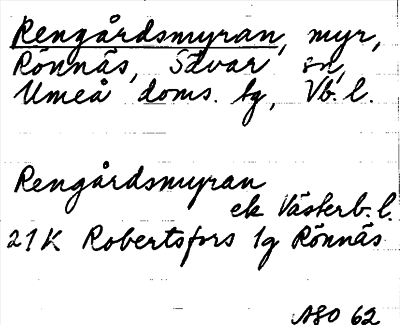 Rengårdsmyran, myr,
Rönnäs, Sävar sn,
Umeå doms. lg, Vb. l.
Rengårdsmyran
ek Västerb. l.
21K Robertsfors 1g Rönnäs
ASO 62